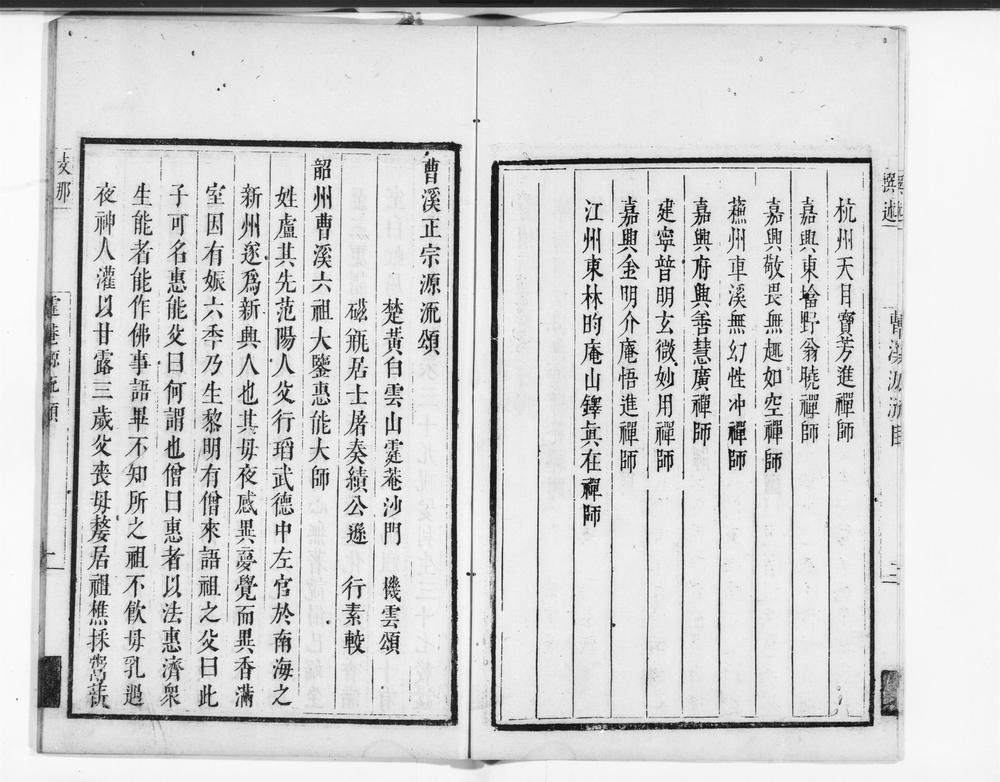 杭州天目寶芳進禪師
嘉興東塔野翁曉禪師
嘉興敬畏無趣如空禪師
蘓州車溪無幻性冲禪師
嘉興府興善慧廣禪師
建寧普明玄微妙用禪師
嘉興金明介庵悟進禪師
江州東林昀庵山鐸眞在禪師
曹溪正宗源流頌
楚黃白雲山霆菴沙門　機雲頌
磁瓶居士屠奏績公遜　行素較
韶州曹溪六祖大鑒惠能大師
姓盧其先范陽人父行瑫武德中左官於南海之
新州遂爲新興人也其母夜感異夢覺而異香滿
室因有娠六年乃生黎明有僧來語祖之父曰此
子可名惠能父曰何謂也僧曰惠者以法惠濟衆
生能者能作佛事語畢不知所之祖不飲母乳遇
夜神人灌以甘露三歲父喪母嫠居祖樵採鬻薪